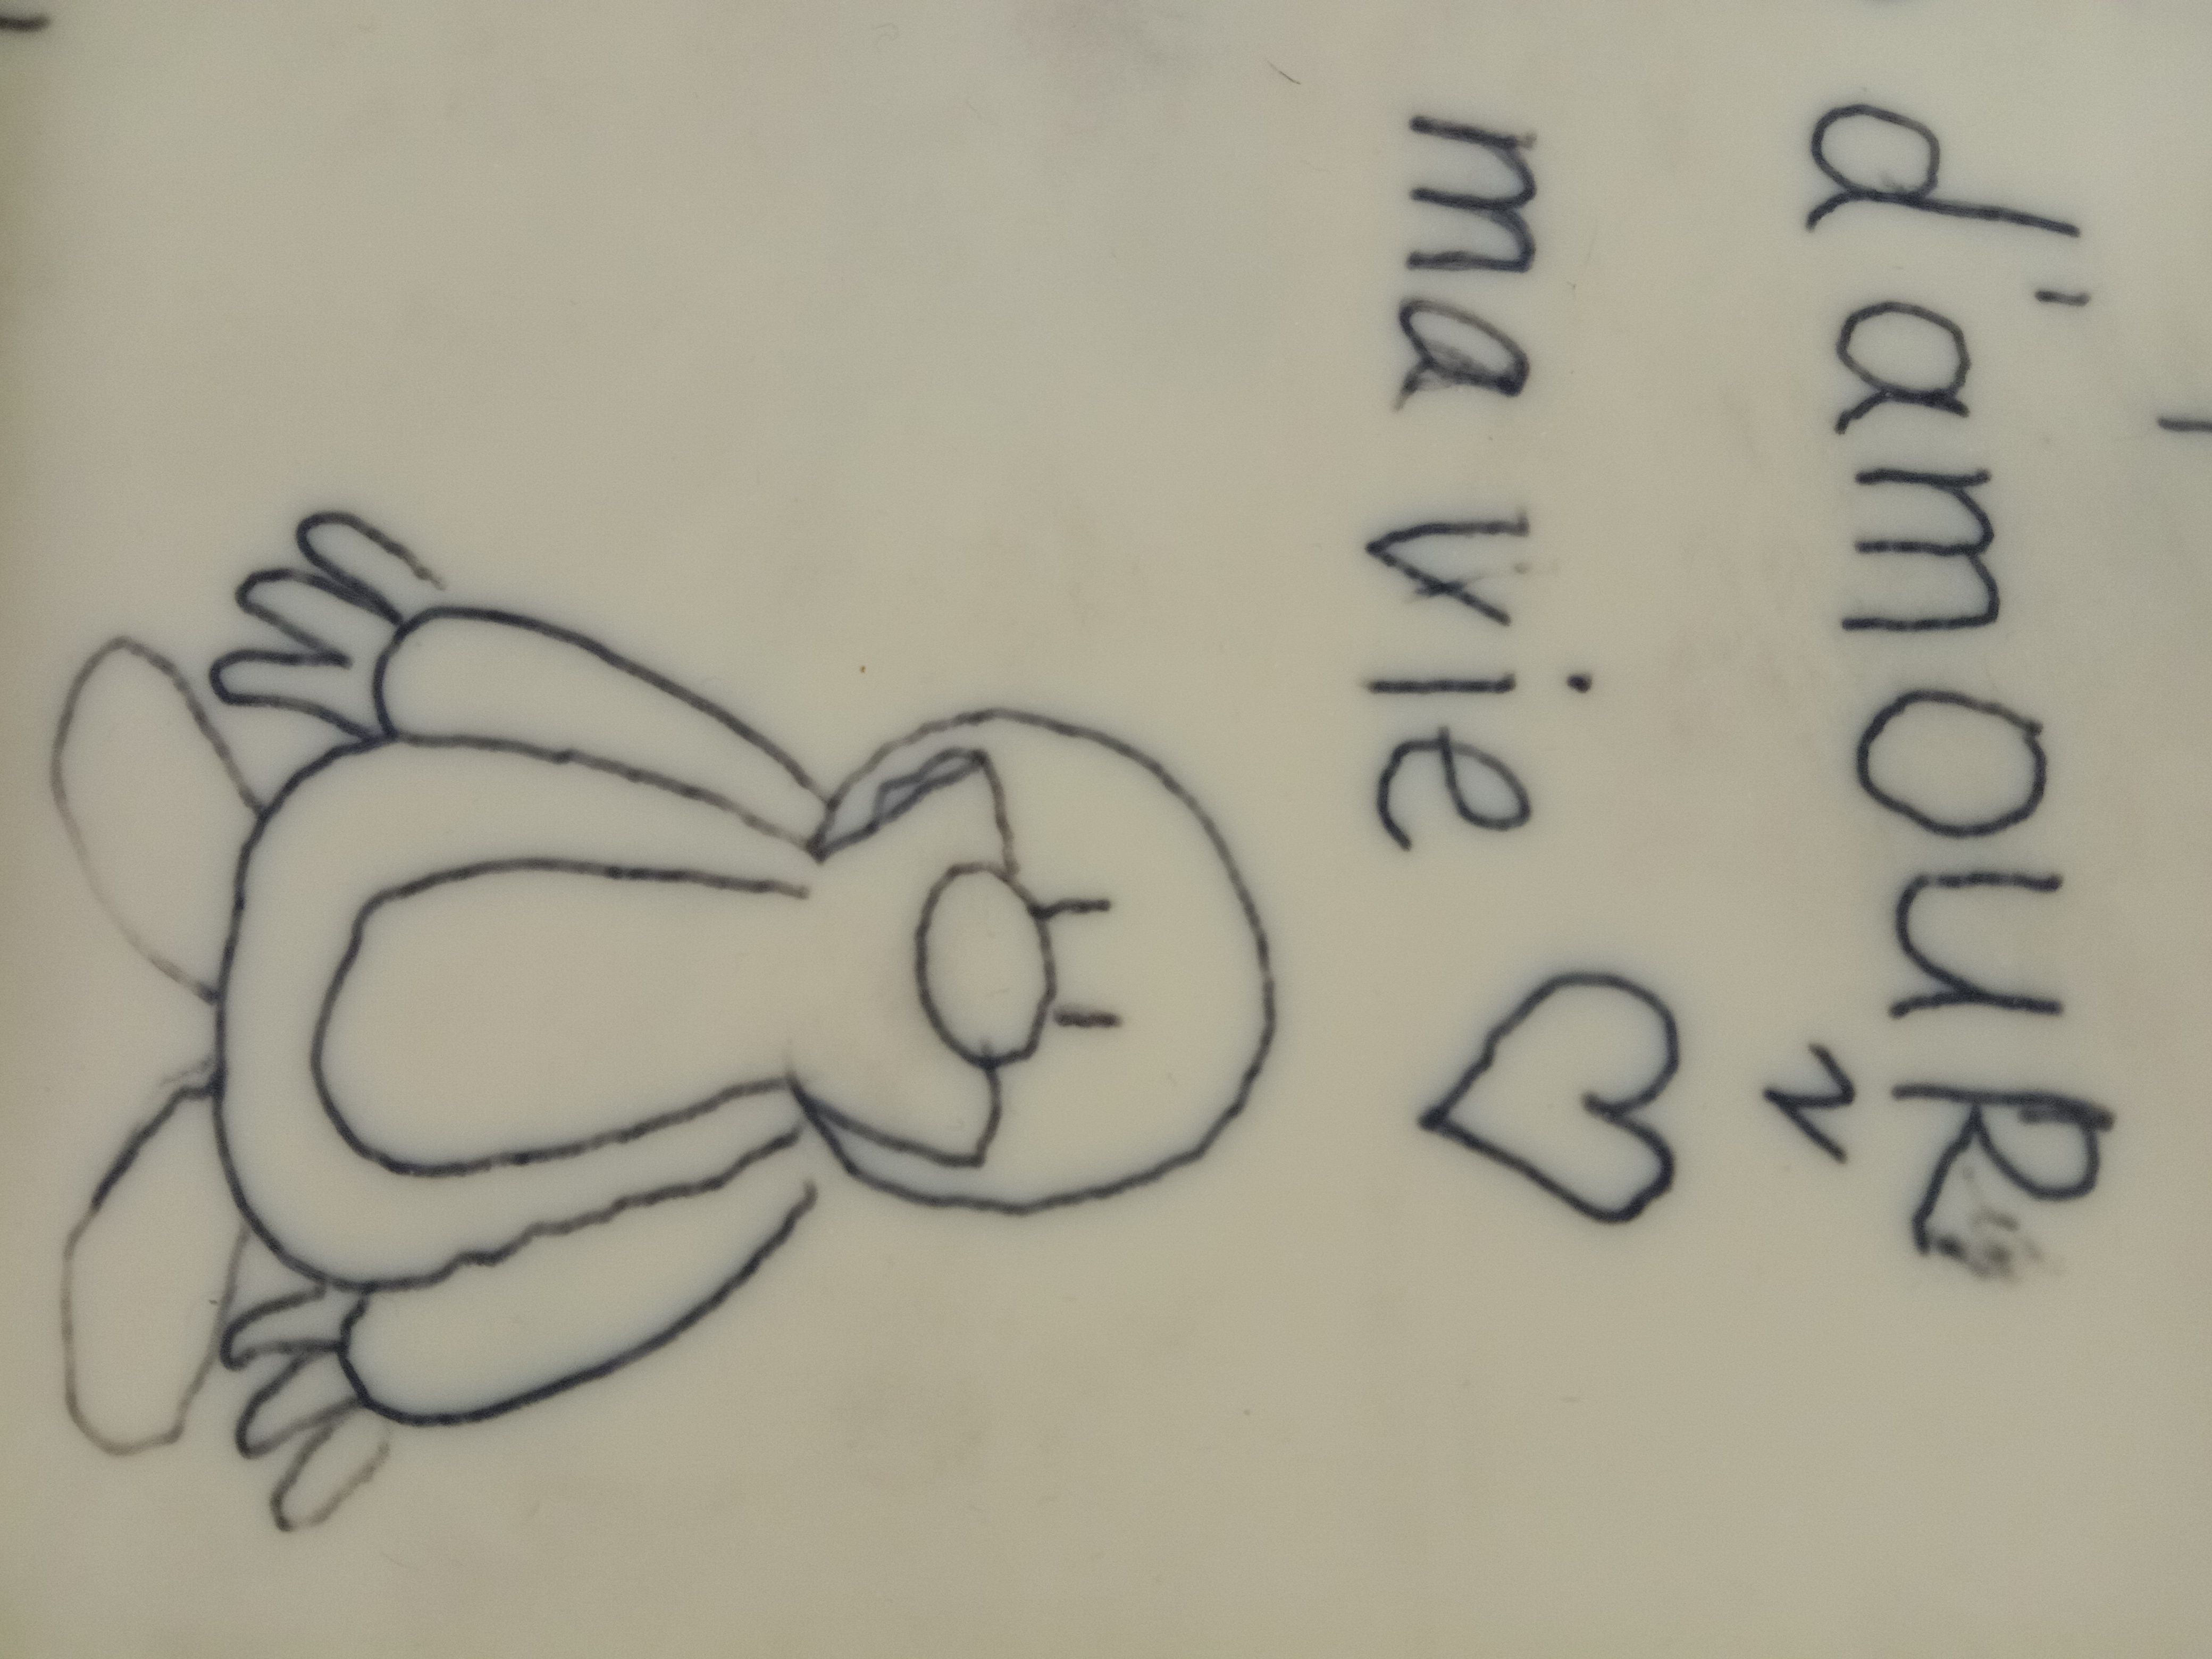 d'amouR
ma vie ♡